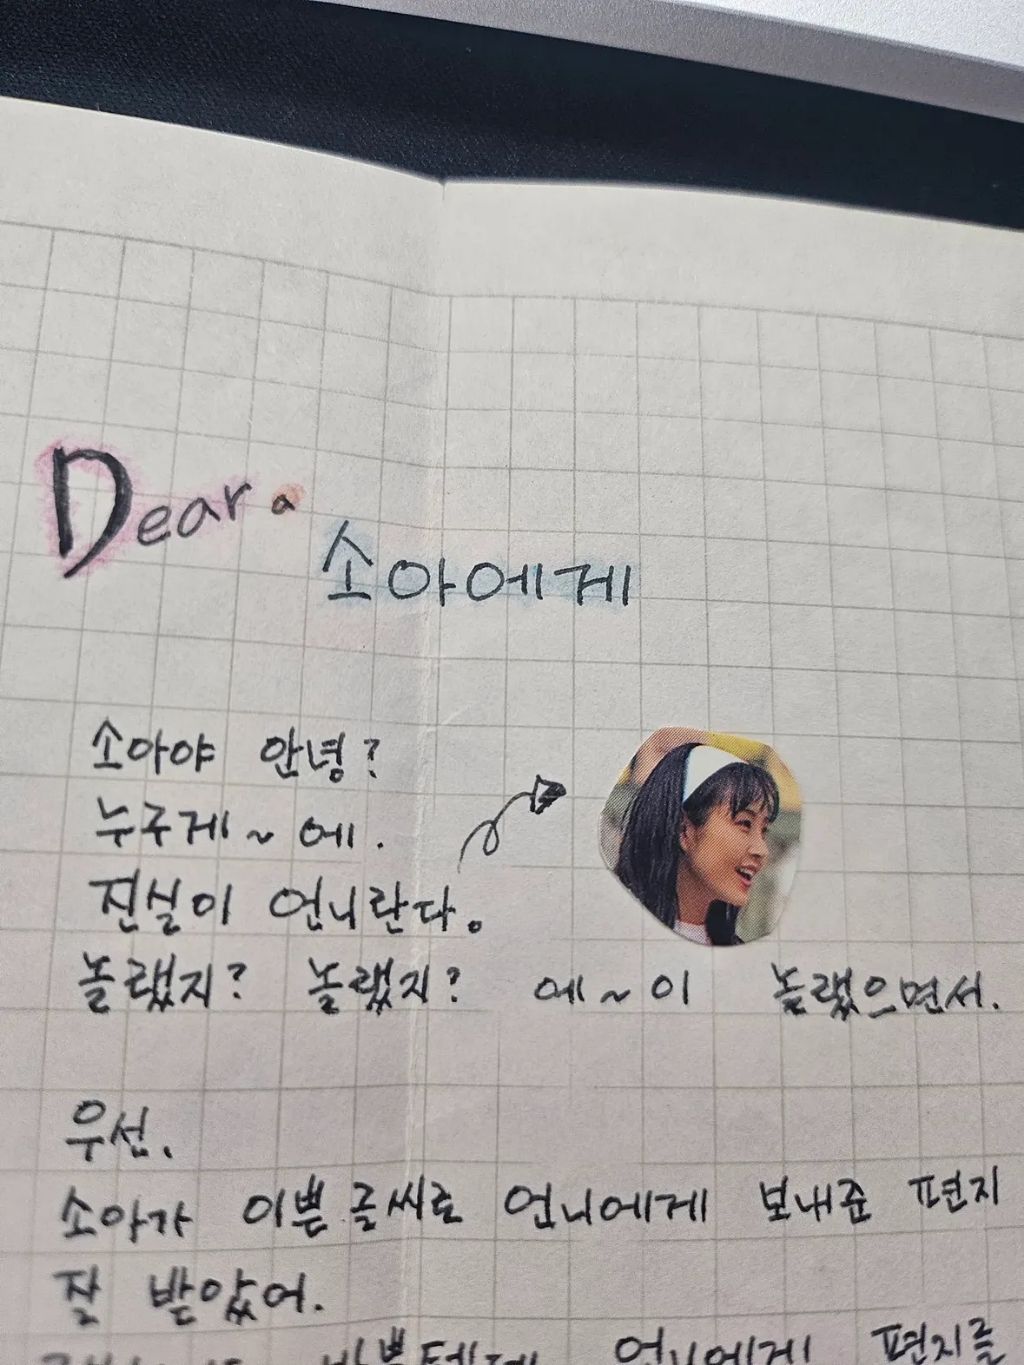 Dear.
소아에게
소아야 안녕?
누구게~에.
진실이 언니란다。
놀랬지? 놀랬지? 에~이 놀랬으면서.
우선.
소아가 이쁜 글씨로 언니에게 보내준 편지
잘 받았어.
언니에게 편지를